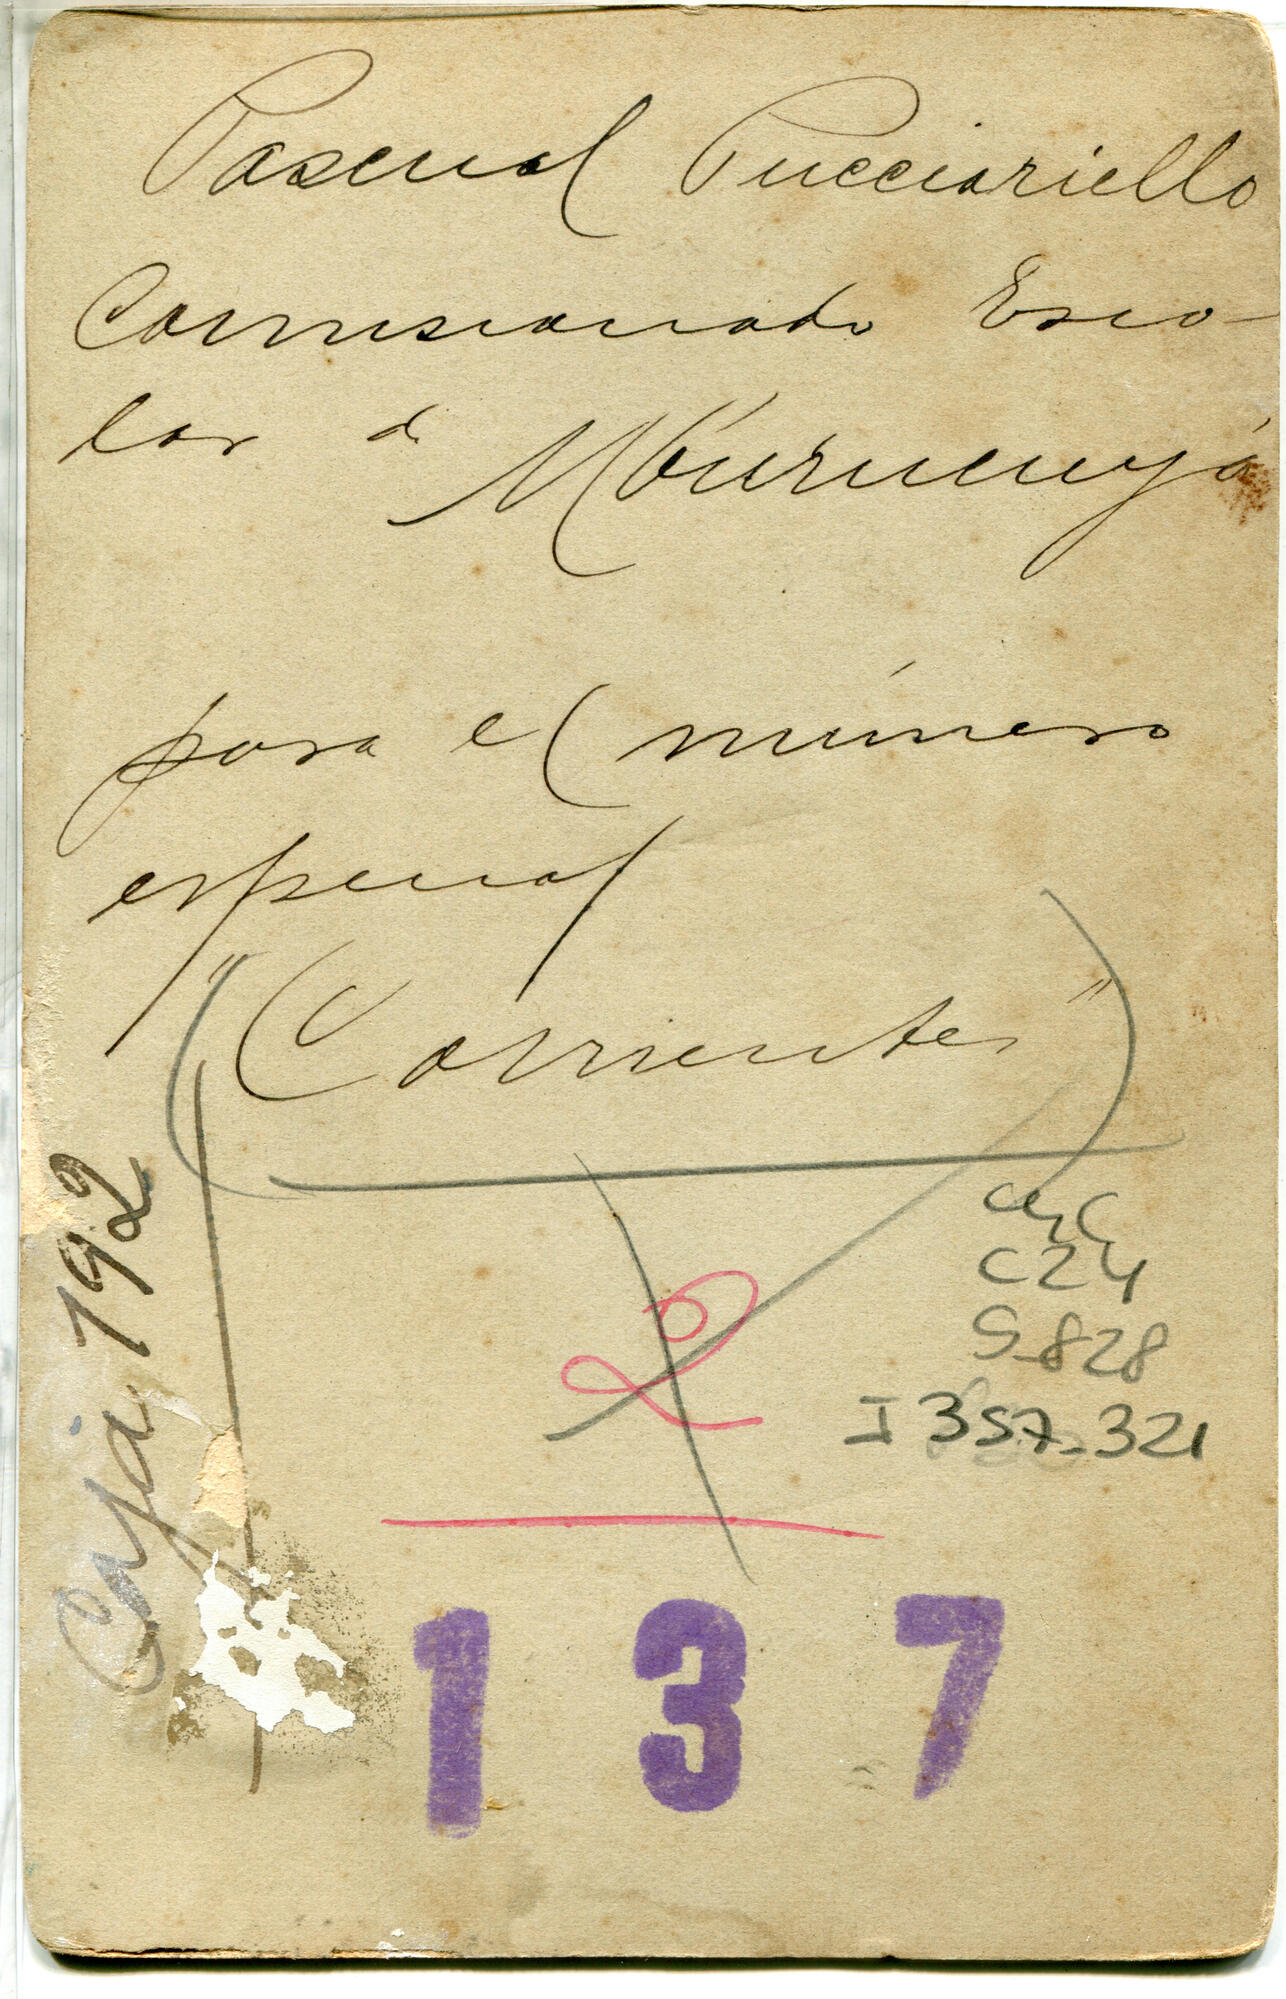 Pascual Pucciariello
Comisionado Esco-
lar de Mburucuyá
para el número
especial
"Corrientes"
C24
S.828
I 357.321
2
Caja 192
137